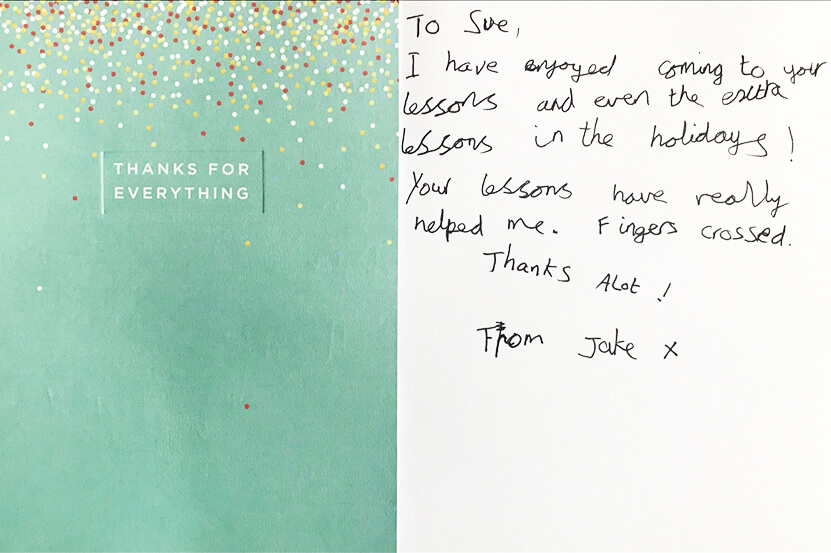 THANKS FOR
EVERYTHING
To Sue,
I have enjoyed coming to your
lessons and even the extra
lessons in the holidays!
Your lessons have really
helped me. Fingers crossed.
Thanks Alot!
From Jake x